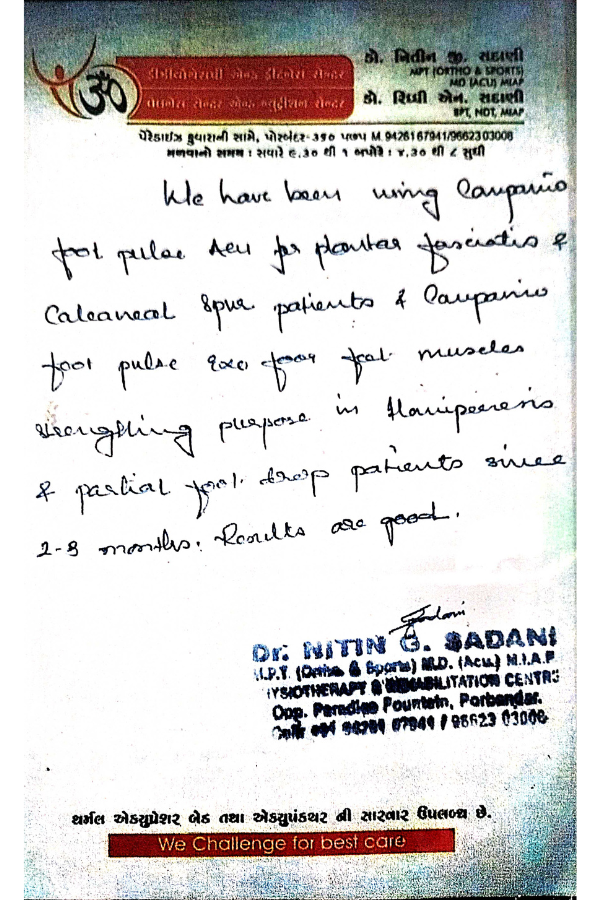 ડો. નિતીન જી. સાદાણી
MPT (ORTHO & SPORTS)
MD (ACU) MIAP
ફીઝીયોથેરાપી એન્ડ ફીટનેસ સેન્ટર
ડો. રિધ્ધી એન. સાદાણી
BPT, NDT, MIAP
ૐ
પેરેડાઈઝ ફુવારાની સામે, પોરબંદર-૩૬૦ ૫૭૫ M. 9426167941/9662303008
મળવાનો સમય : સવારે ૯.૩૦ થી ૧ બપોરે : ૪.૩૦ થી ૮ સુધી
We have been using Campanio
foot pulse Acu for plantar fasciatis &
Calcaneal Spur patients & Campanio
foot pulse Exe foor foot muscles
strengthing purpose in Hemiparesis
& partial foot drop patients since
2-3 months. Results are good.
Sadani
Dr. NITIN G. SADANI
M.P.T. (Ortho & Sports) M.D. (Acu.) M.I.A.P
PHYSIOTHERAPY & REHABILITATION CENTRE
Opp. Paradise Fountain, Porbandar.
થર્મલ એક્યુપ્રેશર બેડ તથા એક્યુપંકચર ની સારવાર ઉપલબ્ધ છે.
We Challenge for best care